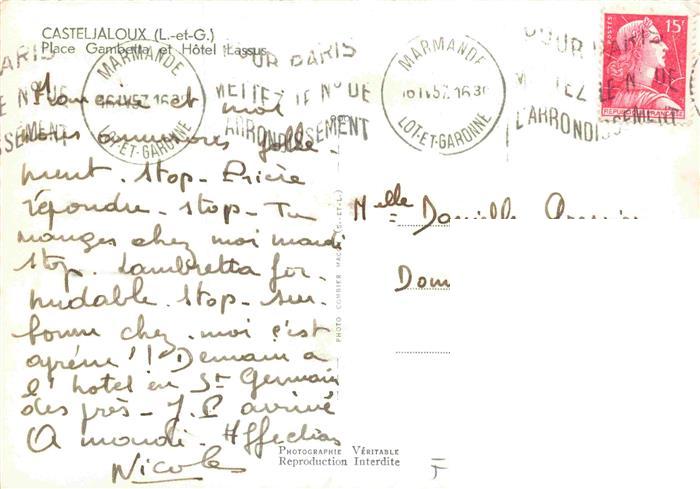 CASTELJALOUX (L.-et-G.)
Place Gambetta et Hôtel Lassus
POUR PARIS
METTEZ LE N° DE
L'ARRONDISSEMENT
MARMANDE
16-IV57.1630
LOT-ET-GARONNE
POUR PARIS
METTEZ LE N° DE
L'ARRONDISSEMENT
MARMANDE
16-IV57.1630
LOT-ET-GARONNE
POUR PARIS
METTEZ LE N° DE
L'ARRONDISSEMENT
15F
REPUBLIQUE FRANÇAISE
et moi
nous ennuyons folle-
ment. Stop. Prière
répondre. stop. Tu
manges chez moi mardi
stop. Lambretta for-
midable. stop. sur-
boum chez moi c'est
après!! Demain a
l'hotel en St Germain
des près. J.P arrive
A mardi. Affection
Nicole
Melle Danielle
Dom
PHOTO COMBIER MACON (S.-ET-L.)
PHOTOGRAPHIE VÉRITABLE
Reproduction Interdite